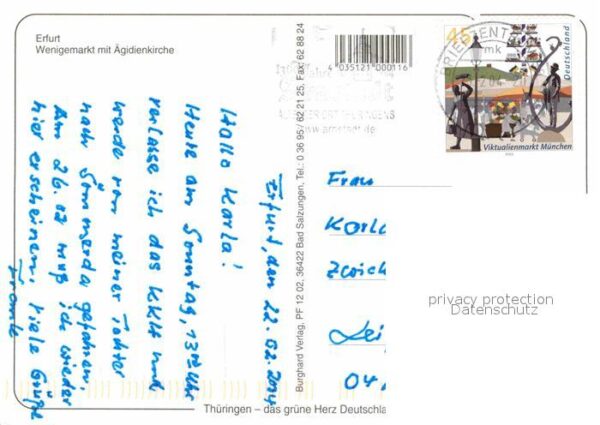 Erfurt
Wenigemarkt mit Ägidienkirche
4 035121 000116
Burghard Verlag, PF 12 02, 36422 Bad Salzungen, Tel.: 0 36 95/ 62 21 25, Fax: 62 88 24
BRIEFZENTRUM
mk
45
Deutschland
Viktualienmarkt München
www.arnstadt.de
Erfurt, den 22.02.2004
Hallo Karla!
Heute am Sonntag, 13 Uhr
verlasse ich das KKH und
werde von meiner Tochter
nach Sömmerda gefahren.
Am 26.02 muß ich wieder
hier erscheinen. Viele Grüße
Frau
Karl
04
privacy protection
Datenschutz
Thüringen – das grüne Herz Deutschla